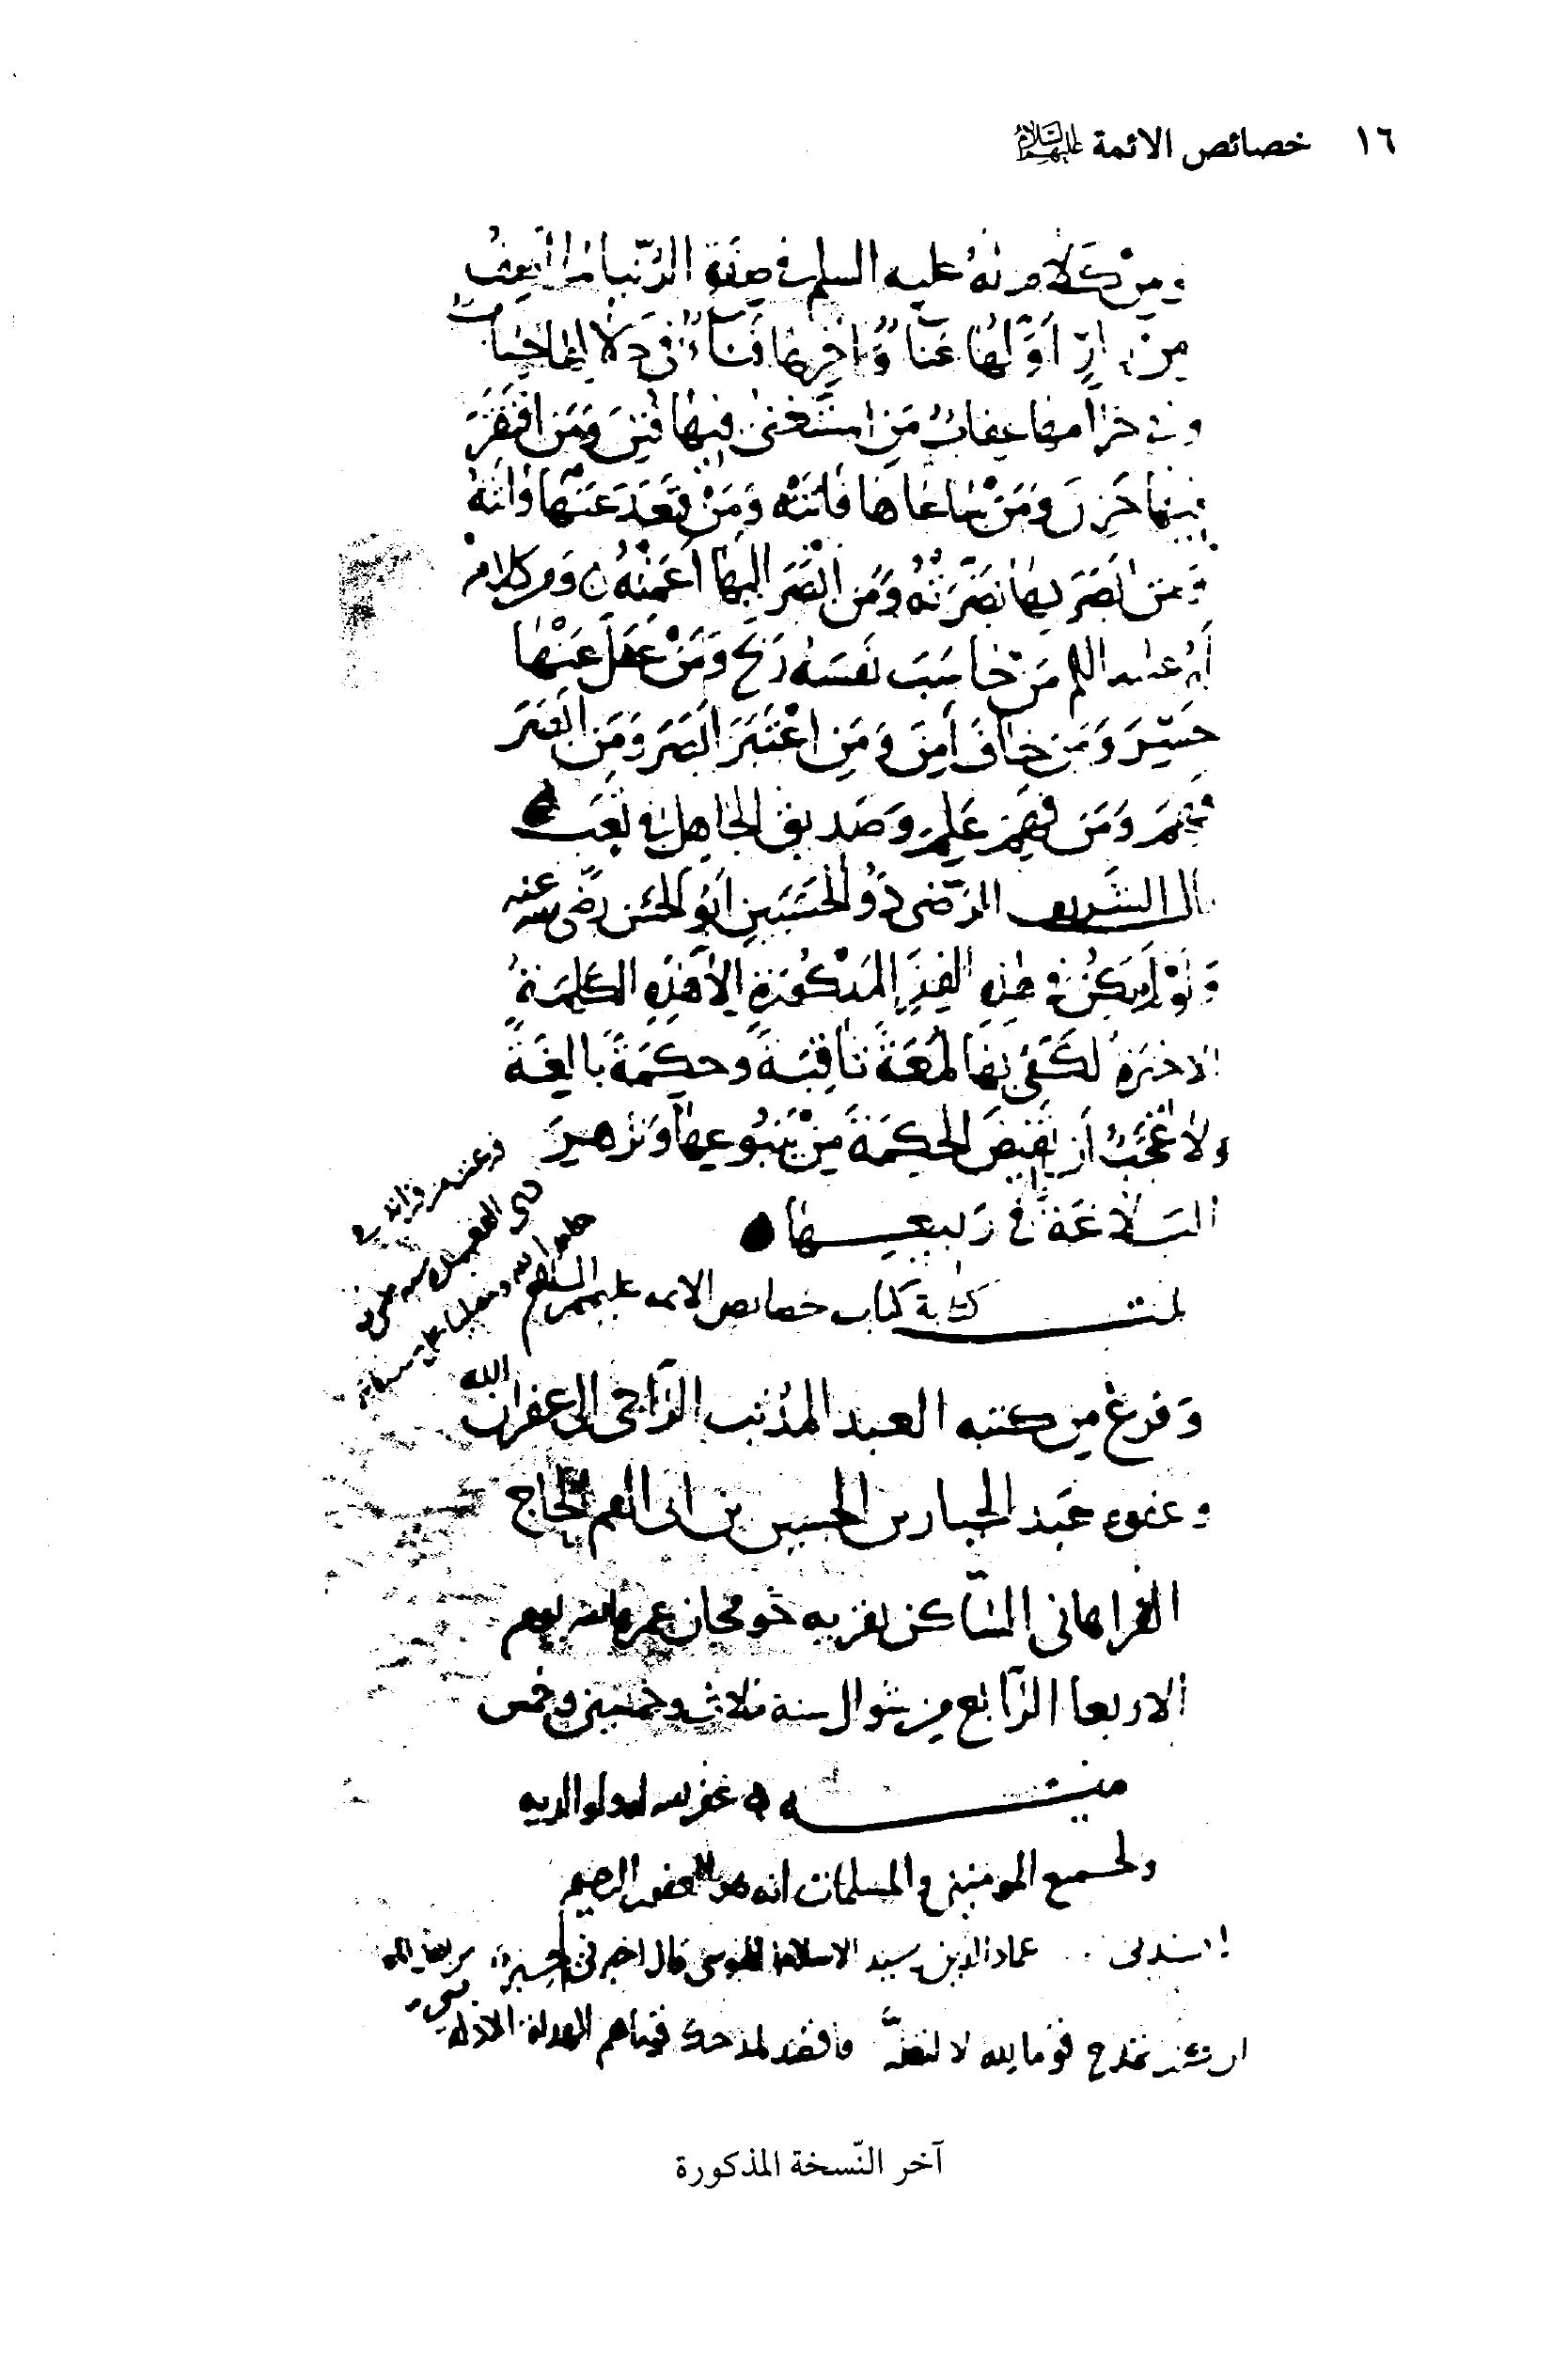 ١٦ خصائص الائمة عليهم السلام
ومن كلام له عليه السلم في صفة الدنيا ما اصف
من دار اولها عناء واخرها فناء في حلالها حساب
وفي حرامها عقاب من استغنى فيها فتن ومن افتقر
فيها حزن ومن ساعاها فاتته ومن قعد عنها واتته
ومن ابصر بها بصرته ومن ابصر اليها اعمته ومن كلام
له عليه السلم من حاسب نفسه ربح ومن غفل عنها
خسر ومن خاف امن ومن اعتبر ابصر ومن ابصر
فهم ومن فهم علم وصديق الجاهل في تعب
قال الشريف الرضي ذو الحسبين ابو الحسن رضي الله عنه
ولو لم يكن في هذه الفقر المذكورة الا هذه الكلمة
الاخيرة لكفى بها لمعة ثاقبة وحكمة بالغة
ولا عجب ان تفيض الحكمة من ينبوعها وتزهر
البلاغة في ربيعها
تمت كتابة كتاب خصايص الائمه عليهم السلام
وفرغ من كتبه العبد المذنب الراجي الى غفران الله
وعفوه عبد الجبار بن الحسين بن ابي القم الحاج
الفراهاني الساكن بقريه خومجان عمرها الله يوم
الاربعا الرابع من شوال سنة ثلاث وخمسين وخمس
مئه غفر الله له ولوالديه
ولجميع المومنين والمسلمات انه هو الغفور الرحيم
انشدني عماد الدين سيد الاسلام الموسى قال اخبرني
ان كنت تمدح قوما لله لا لتعله فاقصد لمدحك قوما هم الهداة الادله
آخر النّسخة المذكورة